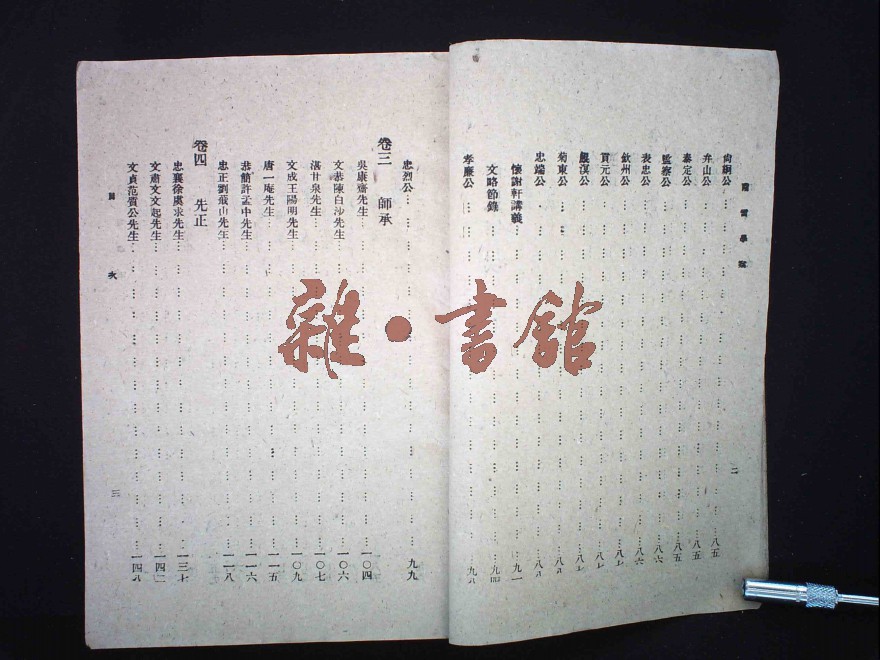 南雷學案
二
尙嗣公 八五
弁山公 八五
泰定公 八五
監察公 八六
表忠公 八六
欽州公 八七
貢元公 八七
菊東公 八八
忠端公 八八
懷謝軒講義 九一
文略節錄
孝廉公
忠烈公 九九
卷三 師承
吳康齋先生 一〇四
文恭陳白沙先生 一〇六
湛甘泉先生 一〇七
文成王陽明先生 一〇九
唐一庵先生 一一五
恭簡許孟中先生 一一六
忠正劉蕺山先生 一一八
卷四 先正
忠襄徐虞求先生 一三七
文肅文文起先生
文貞范質公先生
目次
三
雜·書館